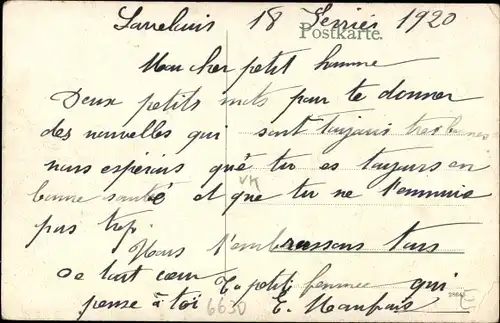 Sarrelouis 18 Fevrier 1920
Postkarte.
Mon cher petit homme
Deux petits mots pour te donner
des nouvelles qui sont toujours tres bonnes
nous esperons que tu es toujours en
bonne santé et que tu ne t'ennuie
pas trop.
Nous t'embrassons tous
de tout cœur
Ta petite femme qui
pense à toi E.
6630
VK